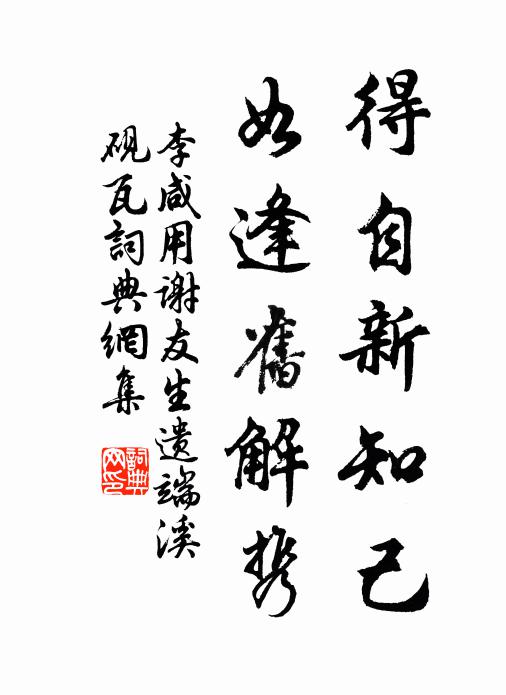 得自新知己
如逢舊解携
李咸用謝友生遺端溪
硯瓦詞典網集
詞典
网印